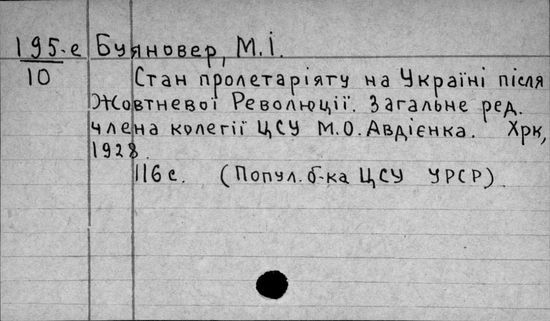 195-е Буяновер, М.І.
10 Стан пролетаріяту на Україні після
Жовтневої Революції. Загальне ред.
члена колегії ЦСУ М.О.Авдієнка. Хрк,
1928.
116с. (Попул.б-ка ЦСУ УРСР).